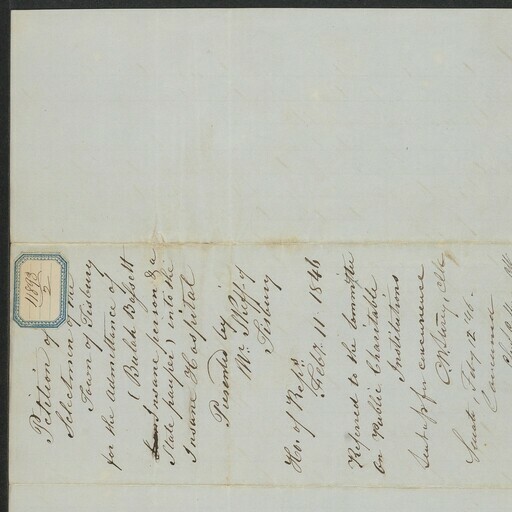 11893/2
Petition of
Selectmen of the
Town of Tisbury
for the admittance of
(Bulah Bassett
insane person & a
State pauper) into the
Insane Hospital
Presented by
Mr. of
Tisbury
Ho. of Reps.
Feb. 11. 1846
Referred to the Committee
on Public Charitable
Institutions
Sent up for concurrence
C W Storey, Clk
Senate, Feby 12 46.
Concurred